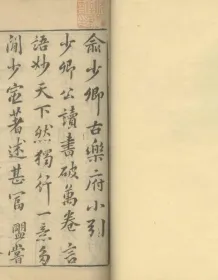 俞少卿古樂府小引
少卿公讀書破萬卷言
語妙天下然獨行一意多
閒少宦著述甚富盟嘗